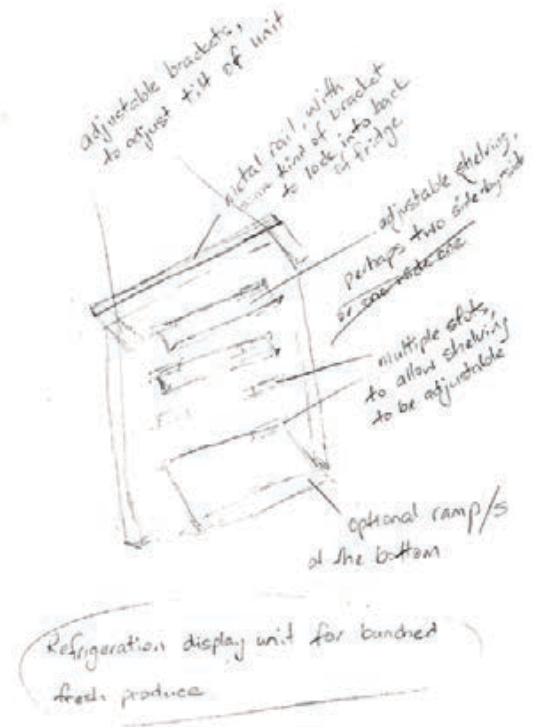 adjustable brackets,
to adjust tilt of unit
metal rail, with
some kind of bracket
to lock into back
of fridge
adjustable shelving,
perhaps two side-by-side
or one wide one
multiple slots,
to allow shelving
to be adjustable
optional ramp/s
at the bottom
Refrigeration display unit for bunched
fresh produce